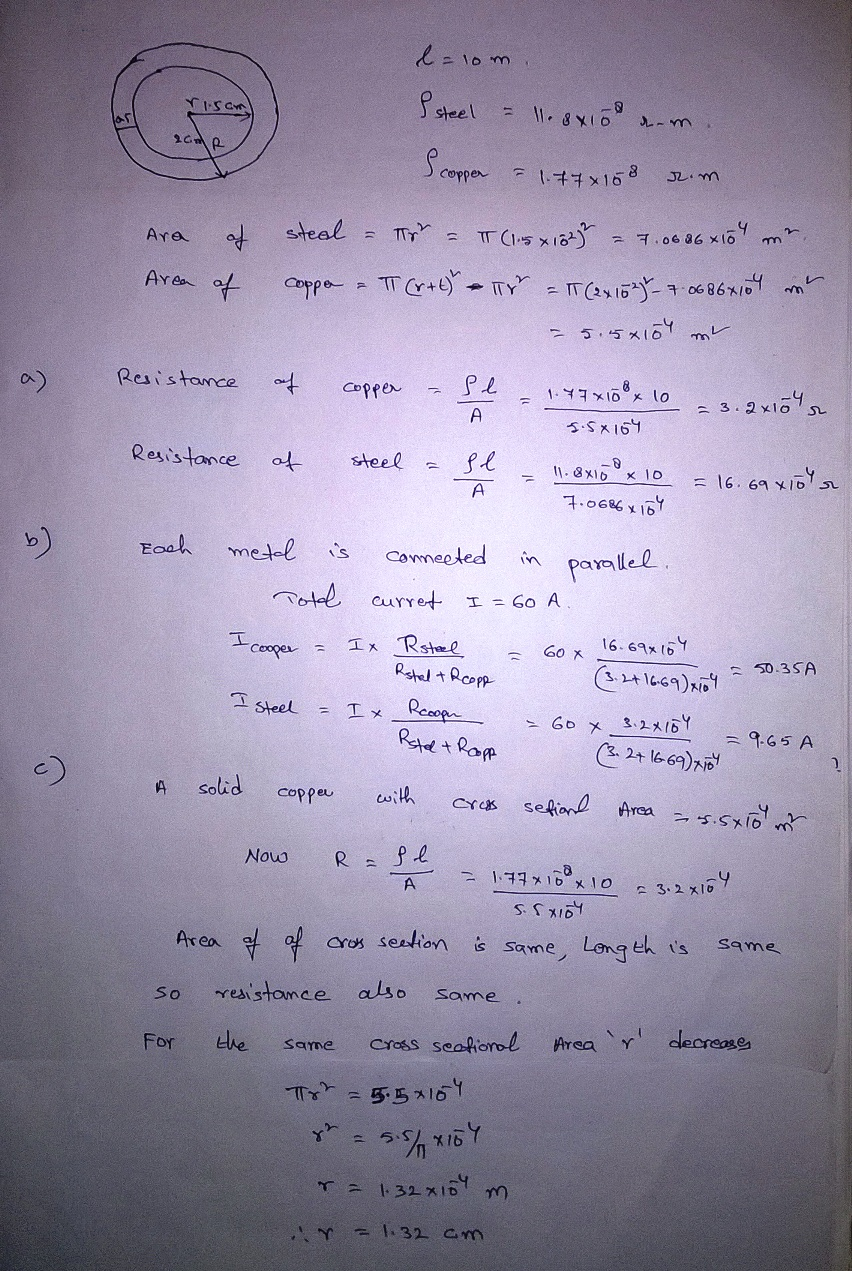 l = 10 m.
r 1.5 cm
0.5
2cm R
ρ steel = 11.8×10⁻⁸ Ω-m.
ρ copper = 1.77×10⁻⁸ Ω.m
Ara of steel = πr² = π(1.5×10⁻²)² = 7.0686×10⁻⁴ m².
Area of copper = π(r+t)² - πr² = π(2×10⁻²)² - 7.0686×10⁻⁴ m²
= 5.5×10⁻⁴ m²
a) Resistance of copper = ρl/A = 1.77×10⁻⁸×10 / 5.5×10⁻⁴ = 3.2×10⁻⁴ Ω
Resistance of steel = ρl/A = 11.8×10⁻⁸×10 / 7.0686×10⁻⁴ = 16.69×10⁻⁴ Ω
b) Each metal is connected in parallel.
Total curret I = 60 A.
I cooper = I× Rsteel / Rstel + Rcopp = 60 × 16.69×10⁻⁴ / (3.2+16.69)×10⁻⁴ = 50.35A
I steel = I× Rcooper / Rstel + Rcopp = 60 × 3.2×10⁻⁴ / (3.2+16.69)×10⁻⁴ = 9.65 A
c) A solid copper with cross sefional Area = 5.5×10⁻⁴ m²
Now R = ρl/A = 1.77×10⁻⁸×10 / 5.5×10⁻⁴ = 3.2×10⁻⁴
Area of of cross seection is same, Length is same
so resistance also same.
For the same cross seafional Area 'r' decreases
πr² = 5.5×10⁻⁴
r² = 5.5/π ×10⁻⁴
r = 1.32×10⁻⁴ m
∴ r = 1.32 cm